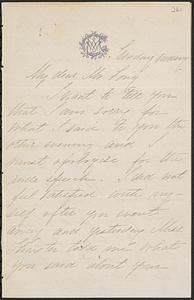 261
Sunday morning
My dear Mr. Long
I want to tell you
that I am sorry for
what I said to you the
other evening and I
must apologise for the
rude speech. I did not
feel satisfied with my-
self after you went
away and yesterday Miss
told me what
you said about your